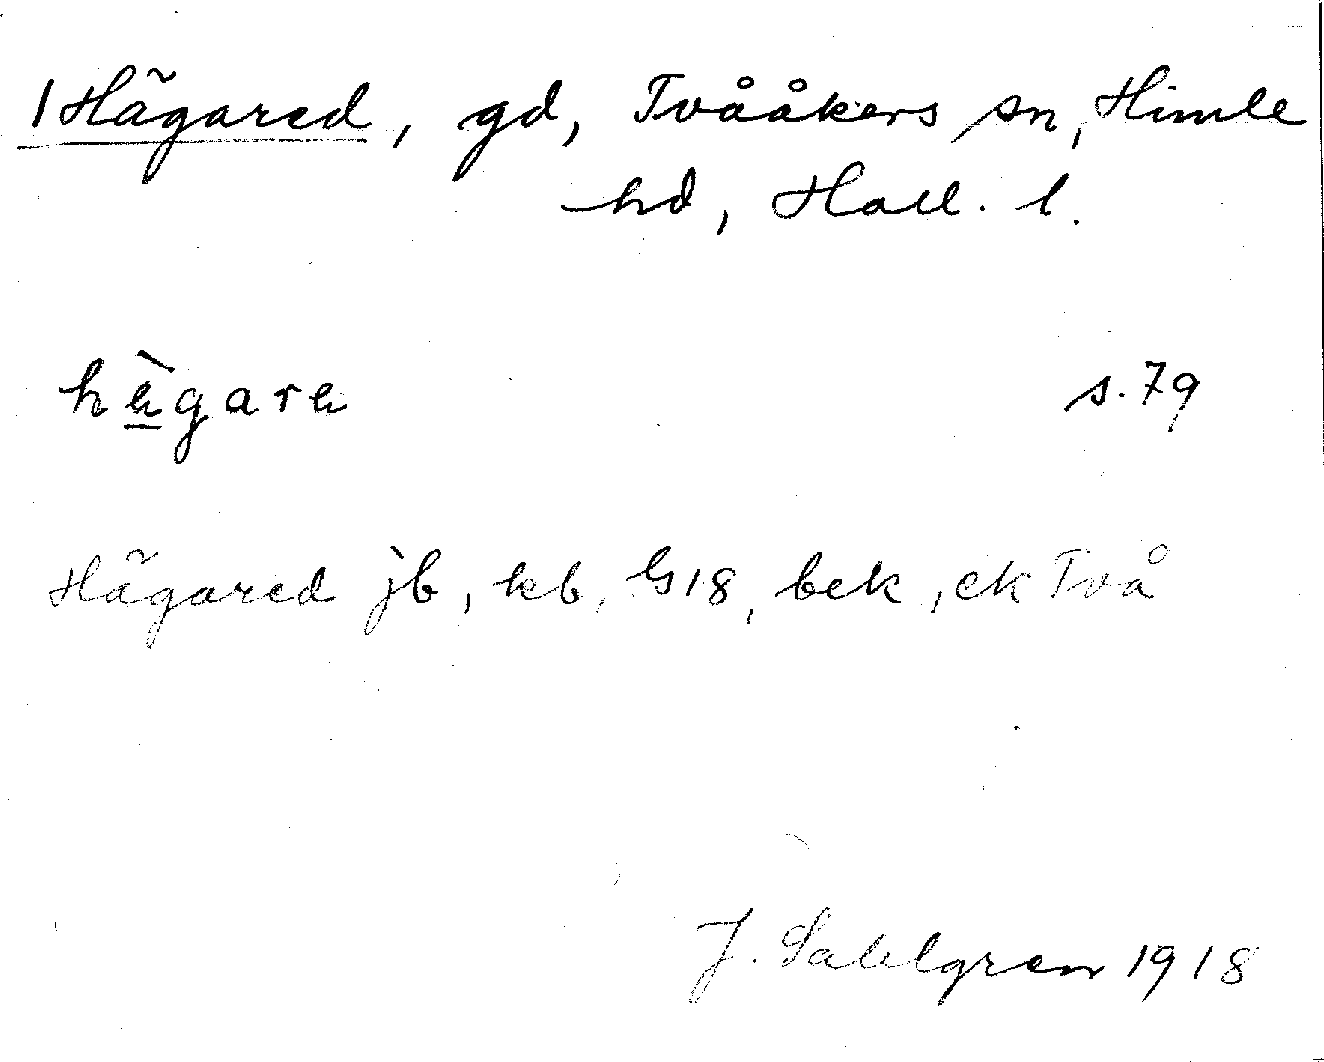 1 Hägared, gd, Tvååkers sn, Himle
hd, Hall. l.
hägarä s. 79
Hägared jb, kb, G18, bek, ek Två
J. Sahlgren 1918